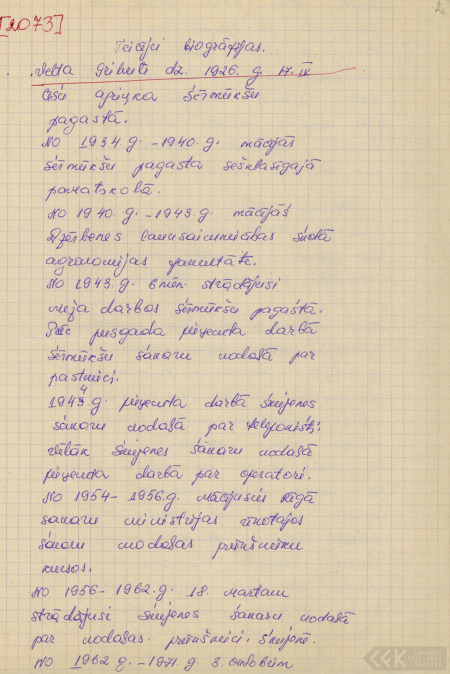 2.
[2073]
Teicēji biogrāfijas.
Velta Gributi dz. 1926. g. 17. IV
Cēsu apriņķa Sērmūkšu
pagastā.
No 1934.g. -1940.g. mācījās
Sērmūkšu pagasta sešklasīgajā
pamatskolā.
No 1940.g. -1943.g. mācījās
Dzērbenes lauksaimniecības skolā
agronomijas fakultātē.
No 1943.g. 6 mēn. strādājusi
meža darbos Sērmūkšu pagastā.
Pēc pusgada pieņemta darbā
Sērmūkšu sakaru nodaļā par
pastnieci.
1944.g. pieņemta darbā Skujenes
sakaru nodaļā par telefonisti.
Vēlāk Skujenes sakaru nodaļā
pieņemta darbā par operatori.
No 1954- 1956.g. mācījusies Rīgā
sakaru ministrijas rīkotajos
sakaru nodaļas priekšnieku
kursos.
No 1956- 1962.g. 18. martam
strādājusi Skujenes sakaru nodaļā
par nodaļas priekšnieci Skujenē.
No 1962 g. -1971.g. 3. oktobrim
LFK